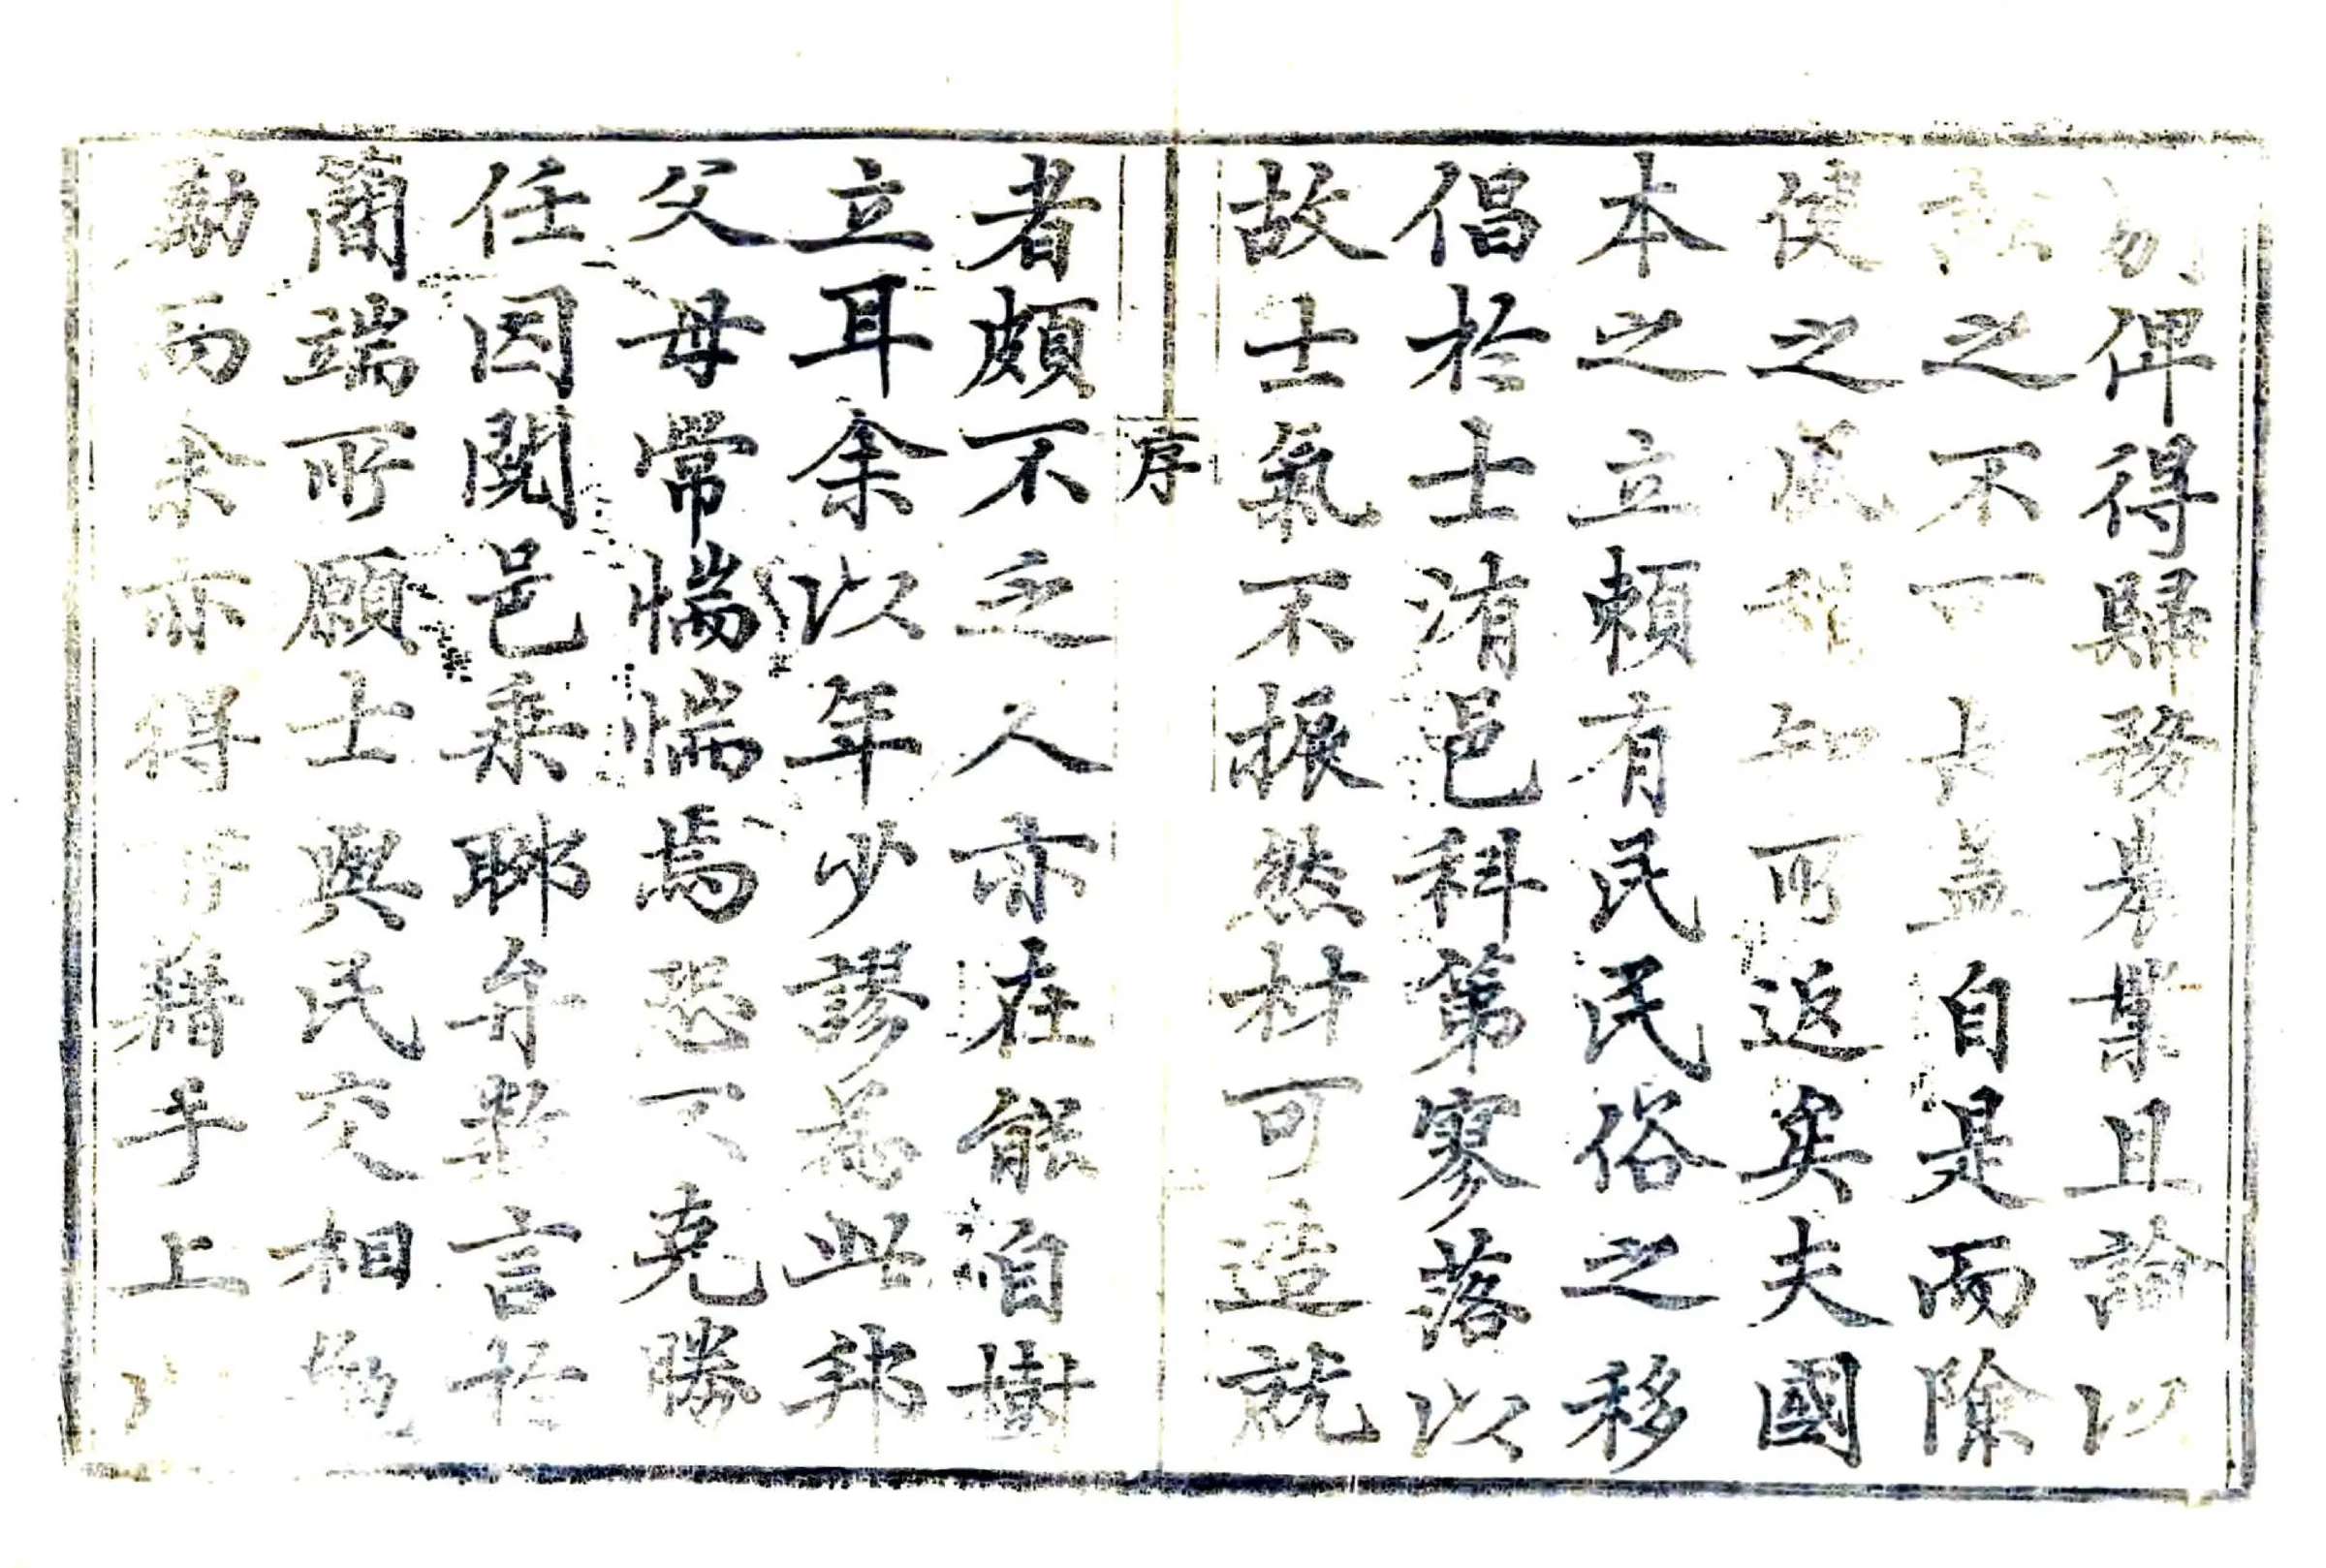 俾得歸務舉業且論以
之不可長盖自是而除
使之風稍知所返矣夫國
本之立頼有民民俗之移
倡於士洧邑科第寥落以
故士氣不振然材可造就
序
者頗不乏人亦在能自樹
立耳余以年少謬為此邦
父母常惴惴焉恐不克勝
任因閱邑乘聊弁數言於
簡端所願士與民交相勉
勵而余亦得所藉手上